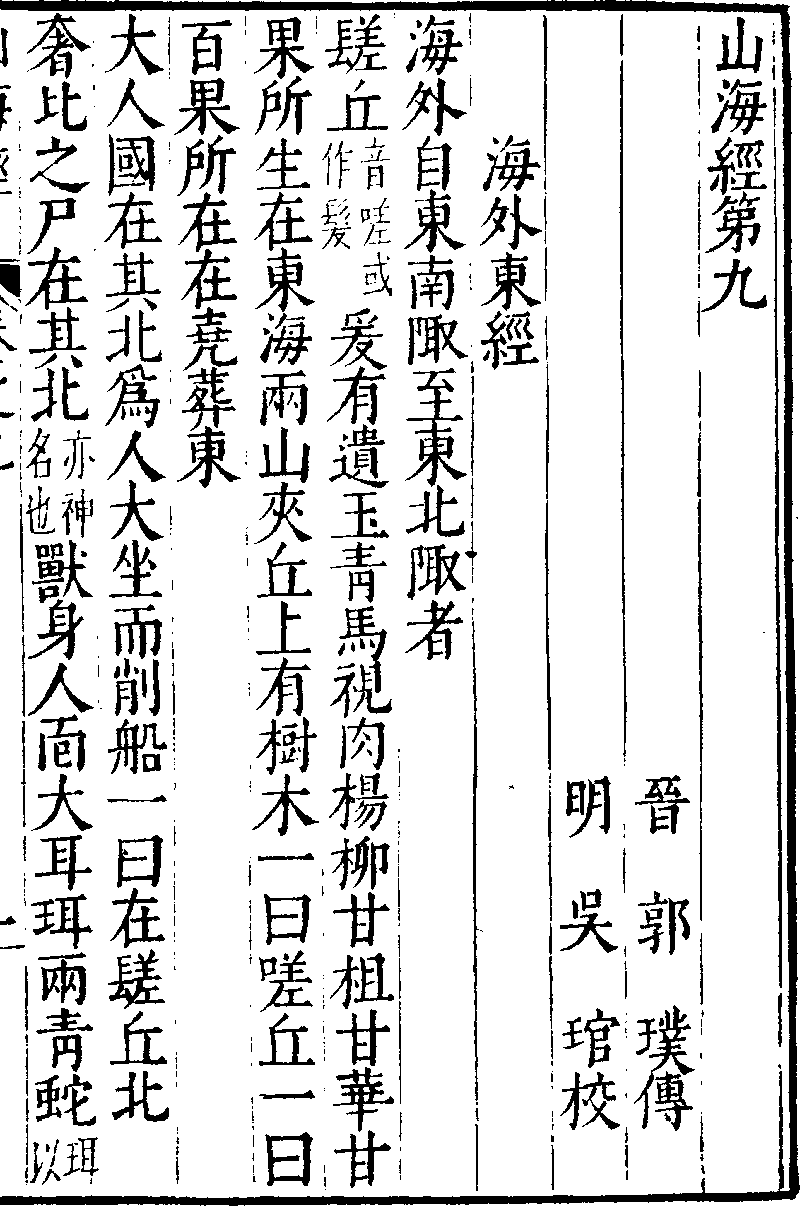 山海經第九
晉郭璞傳
明吳琯校
海外東經
海外自東南陬至東北陬者
䰈丘音嗟或作髮爰有遺玉青馬視肉楊柳甘柤甘華甘
果所生在東海兩山夾丘上有樹木一曰嗟丘一曰
百果所在在堯葬東
大人國在其北爲人大坐而削船一曰在䰈丘北
奢比之尸在其北亦神名也獸身人面大耳珥兩青蛇珥以